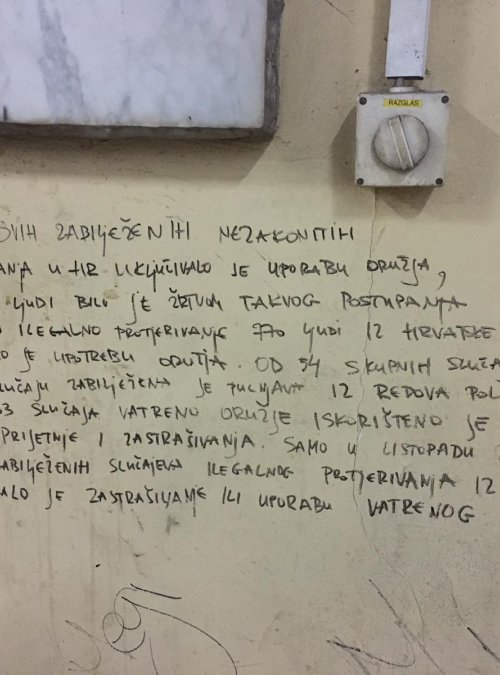 RAZGLAS
SVIH ZABILJEŽENIH NEZAKONITIH
ANJA U HR UKLJUČIVALO JE UPORABU ORUŽJA,
LJUDI BILO JE ŽRTVOM TAKVOG POSTUPANJA
ILEGALNO PROTJERIVANJE 770 LJUDI IZ HRVATSKE
O JE UPOTREBU ORUŽJA. OD 54 SKUPNIH SLUČA
LUČAJU ZABILJEŽENA JE PUCNJAVA IZ REDOVA POL
3 SLUČAJA VATRENO ORUŽJE ISKORIŠTENO JE
PRIJETNJE I ZASTRAŠIVANJA. SAMO U LISTOPADU
ABILJEŽENIH SLUČAJEVA ILEGALNOG PROTJERIVANJA IZ
ALO JE ZASTRAŠIVANJE ILI UPORABU VATRENOG